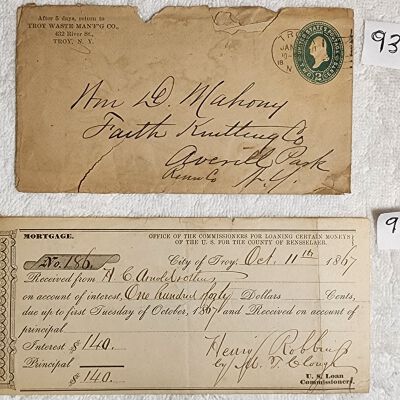 After 5 days, return to
TROY WASTE MANF'G CO.,
432 River St.,
TROY, N. Y.
TR
JAN
18
N
UNITED STATES POSTAGE
TWO 2 CENTS
93
Wm D. Mahony
Faith Knitting Co
Averill Park
Renss Co N.Y.
9
MORTGAGE.
OFFICE OF THE COMMISSIONERS FOR LOANING CERTAIN MONEYS
OF THE U. S. FOR THE COUNTY OF RENSSELAER.
No. 186.
City of Troy, Oct. 11th 1867
Received from A C Arnold
on account of interest, One hundred forty Dollars Cents,
due up to first Tuesday of October, 1867 and Received on account of
principal.
Interest $ 140.
Principal
$ 140.
Henry Robbins
by M. T. Clough
U. S. Loan
Commissioners.